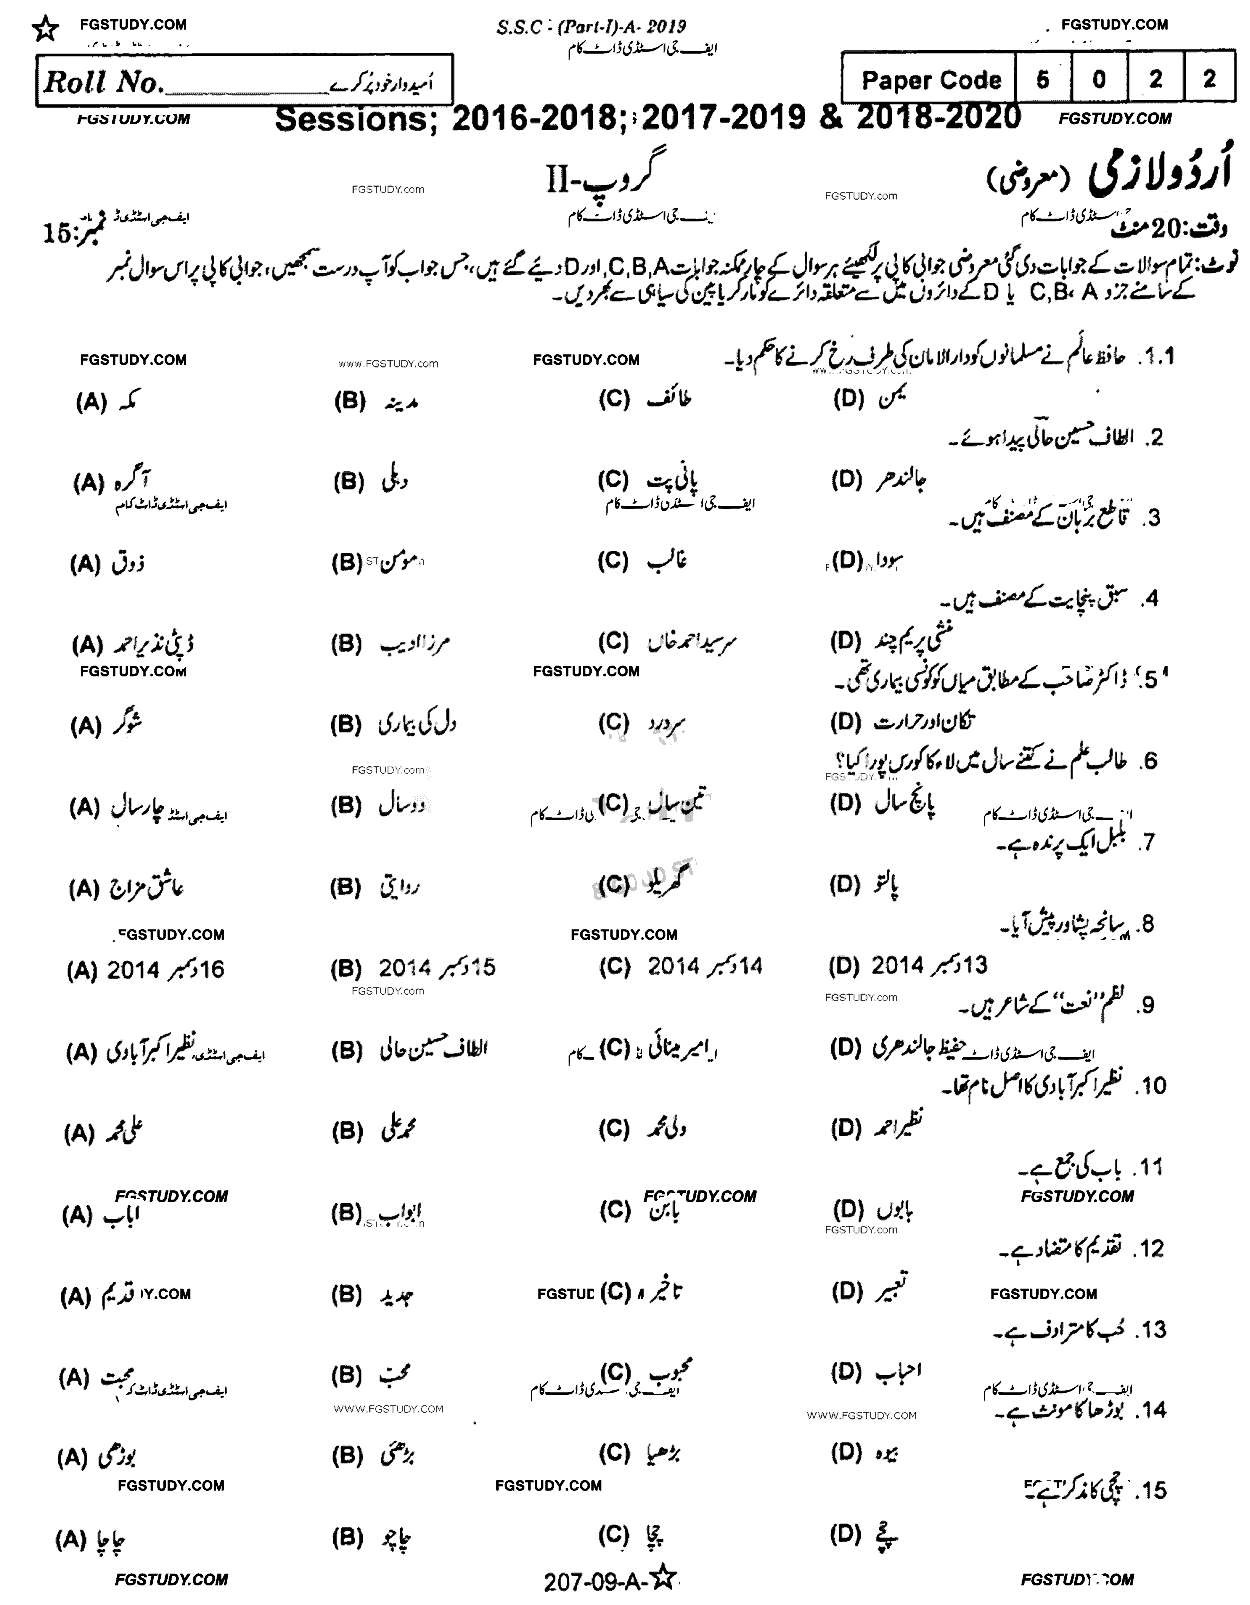 FGSTUDY.COM S.S.C - (Part-I)-A- 2019 FGSTUDY.COM
ایف جی اسٹڈی ڈاٹ کام
Roll No.____________ اُمیدوار خود پُر کرے Paper Code 5 0 2 2
FGSTUDY.COM Sessions; 2016-2018; 2017-2019 & 2018-2020 FGSTUDY.COM
اُردو لازمی (معروضی) گروپ-II
FGSTUDY.com FGSTUDY.com
وقت: 20 منٹ نمبر: 15
نوٹ: تمام سوالات کے جوابات دی گئی معروضی جوابی کاپی پر لکھیئے ہر سوال کے چار ممکنہ جوابات C,B,A, اور D دیئے گئے ہیں، جس جواب کو آپ درست سمجھیں، جوابی کاپی پر اس سوال نمبر
کے سامنے جزو C,B، A یا D کے دائروں میں سے متعلقہ دائرے کو مارکر یا پین کی سیاہی سے بھر دیں۔
1.1. حافظ عالَم نے مسلمانوں کو دارالامان کی طرف رخ کرنے کا حکم دیا۔
FGSTUDY.COM www.FGSTUDY.com FGSTUDY.COM
(A) مکہ (B) مدینہ (C) طائف (D) یمن
2. الطاف حسین حالی پیدا ہوئے۔
(A) آگرہ (B) دہلی (C) پانی پت (D) جالندھر
ایف جی اسٹڈی ڈاٹ کام
3. قاطع برہان کے مصنف ہیں۔
(A) ذوق (B) مومن (C) غالب (D) سودا
4. سبق پنچایت کے مصنف ہیں۔
(A) ڈپٹی نذیر احمد (B) مرزا ادیب (C) سرسید احمد خاں (D) منشی پریم چند
FGSTUDY.COM FGSTUDY.COM
5. ڈاکٹر صاحب کے مطابق میاں کو کونسی بیماری تھی۔
(A) شوگر (B) دل کی بیماری (C) سر درد (D) تکان اور حرارت
6. طالب علم نے کتنے سال میں لاء کا کورس پورا کیا؟
FGSTUDY.com
(A) چار سال (B) دو سال (C) تین سال (D) پانچ سال
7. بلبل ایک پرندہ ہے۔
(A) عاشق مزاج (B) روایتی (C) گھریلو (D) پالتو
8. سانحہ پشاور پیش آیا۔
FGSTUDY.COM FGSTUDY.COM
(A) 16 دسمبر 2014 (B) 15 دسمبر 2014 (C) 14 دسمبر 2014 (D) 13 دسمبر 2014
FGSTUDY.com FGSTUDY.com
9. نظم "نعت" کے شاعر ہیں۔
(A) نظیر اکبر آبادی (B) الطاف حسین حالی (C) امیر مینائی (D) حفیظ جالندھری
10. نظیر اکبر آبادی کا اصل نام تھا۔
(A) علی محمد (B) محمد علی (C) ولی محمد (D) نظیر احمد
11. باب کی جمع ہے۔
FGSTUDY.COM FGSTUDY.COM FGSTUDY.COM
(A) اباب (B) ابواب (C) بابن (D) بابوں
FGSTUDY.com
12. تقدیم کا متضاد ہے۔
(A) قدیم (B) جدید (C) تاخیر (D) تعبیر FGSTUDY.COM
13. حُب کا مترادف ہے۔
(A) محبت (B) محبّ (C) محبوب (D) احباب
WWW.FGSTUDY.COM WWW.FGSTUDY.COM
14. بوڑھا کا مونث ہے۔
(A) بوڑھی (B) بڑھئی (C) بڑھیا (D) بیوہ
FGSTUDY.COM FGSTUDY.COM
15. چچی کا مذکر ہے۔
(A) چاچا (B) چاچو (C) چچا (D) چچے
FGSTUDY.COM 207-09-A-☆ FGSTUDY.COM